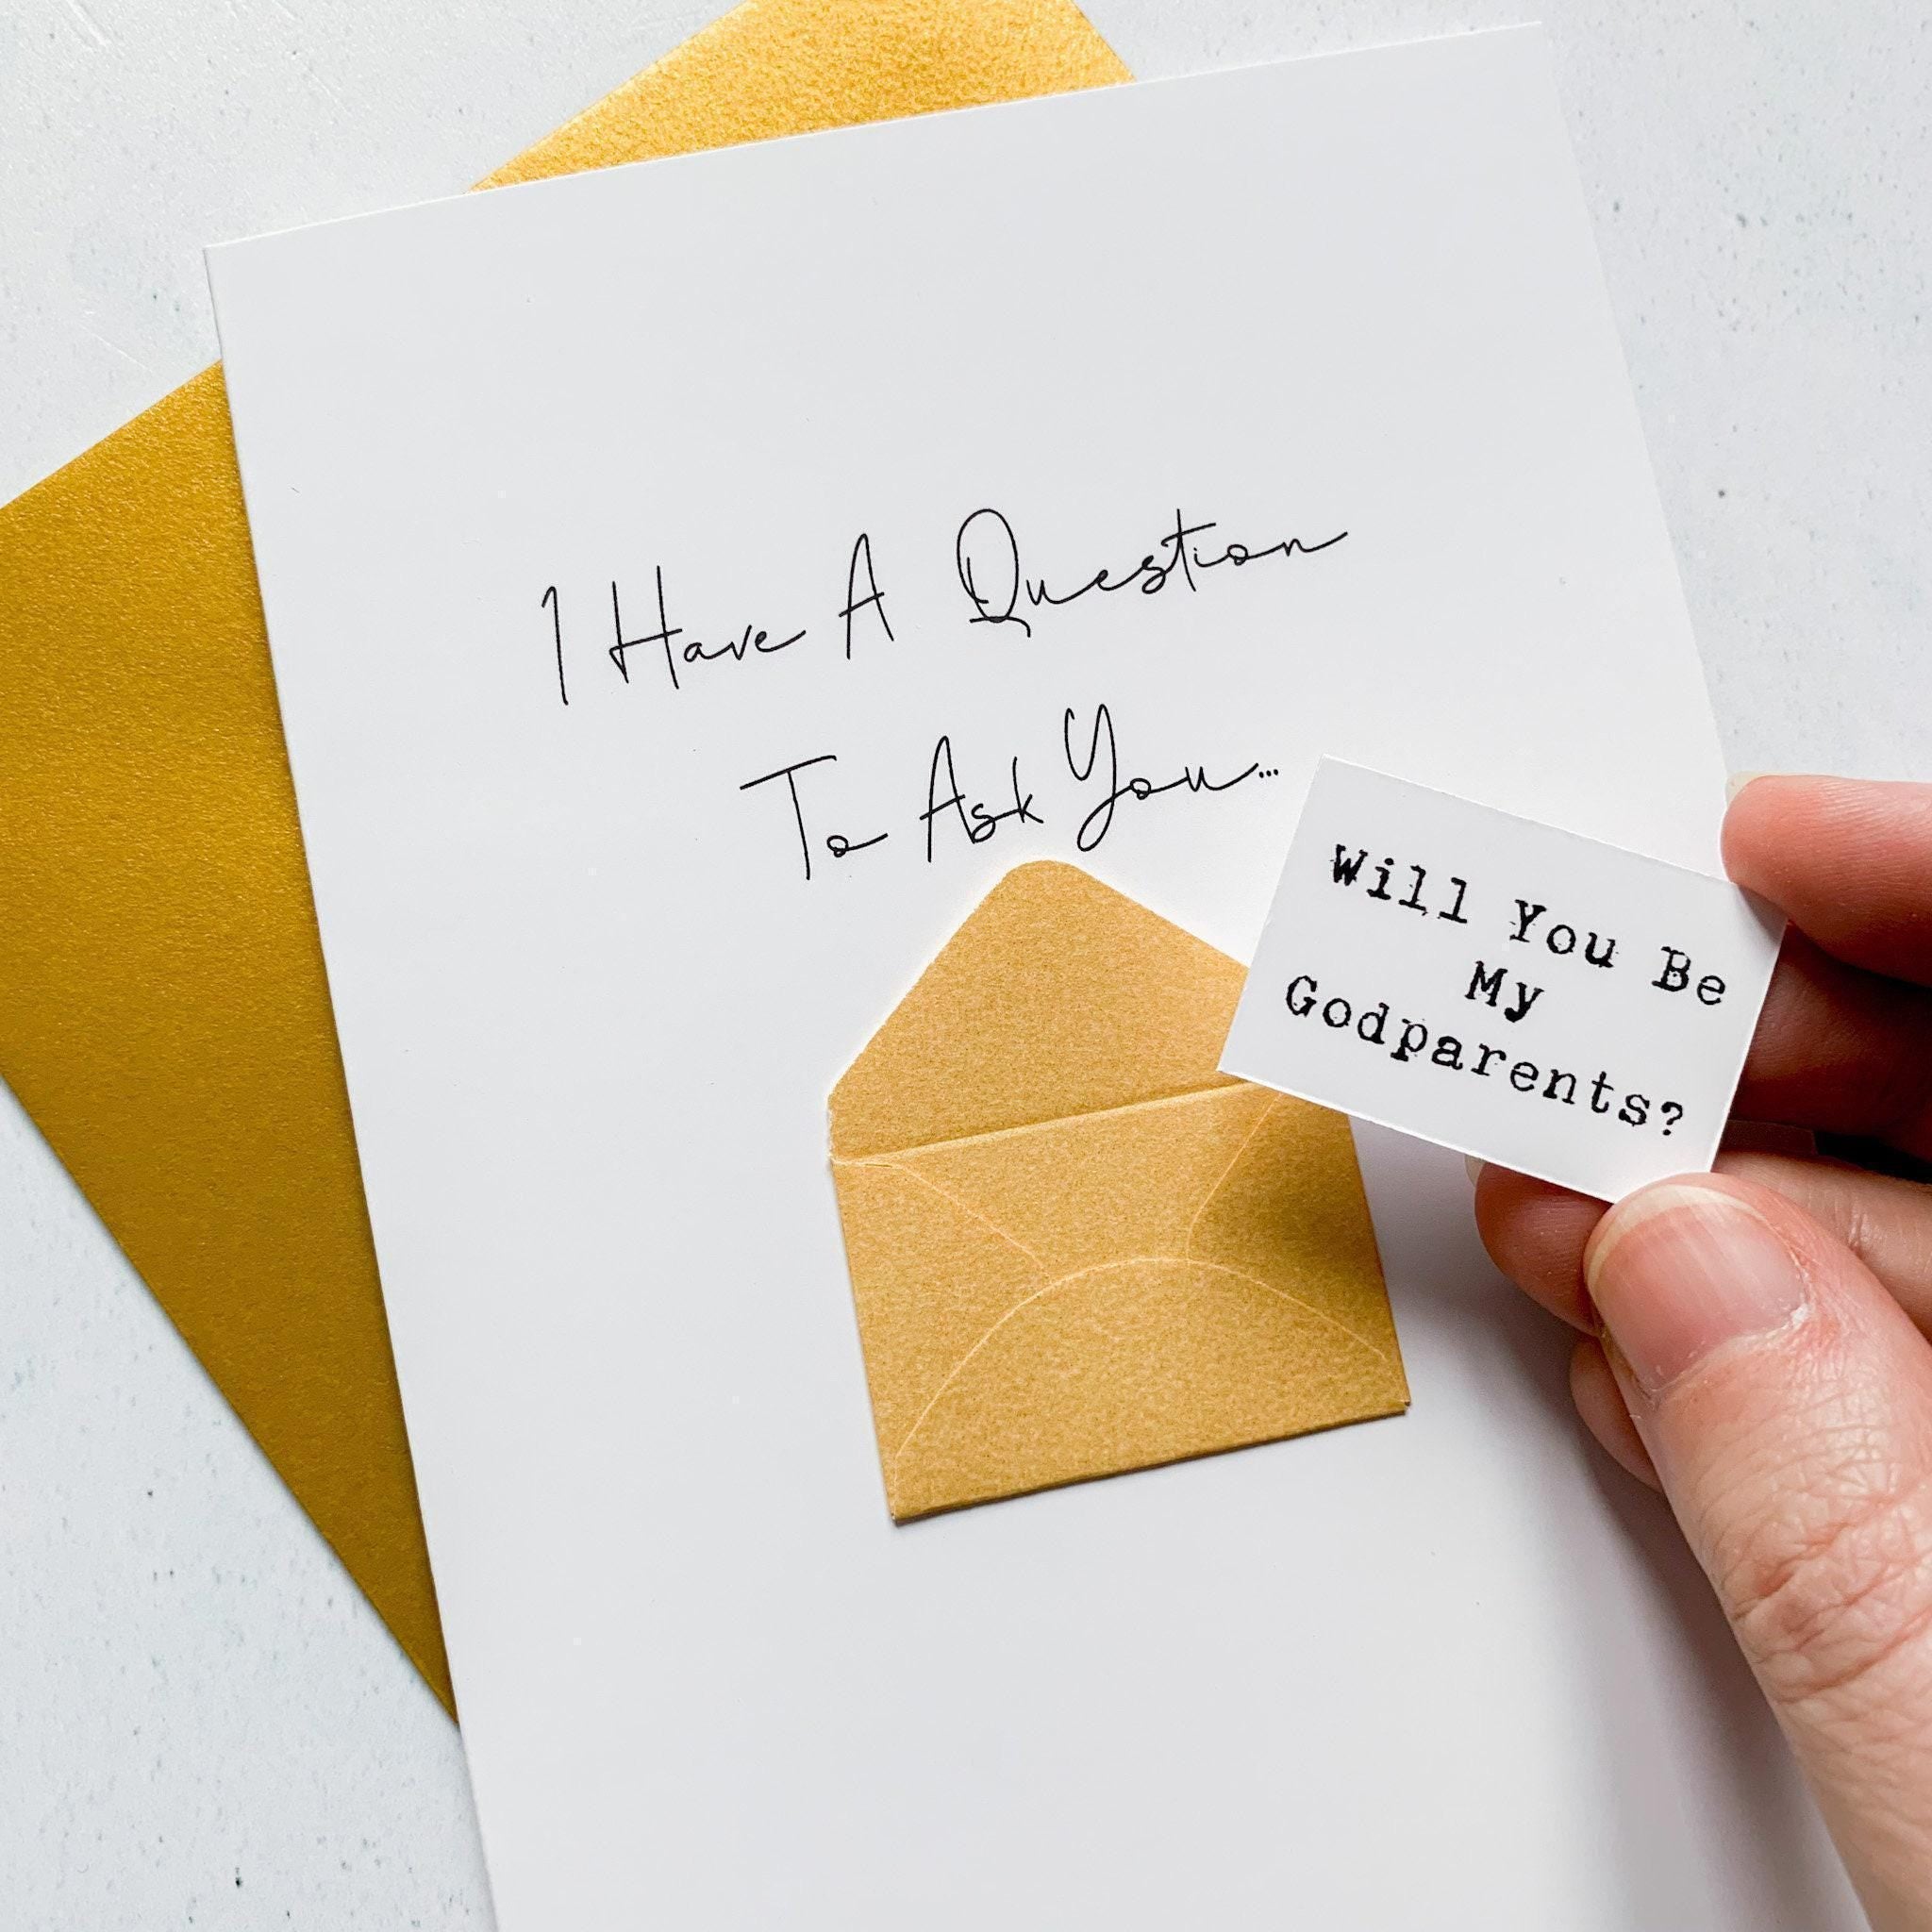 I Have A Question
To Ask You...
Will You Be
My
Godparents?